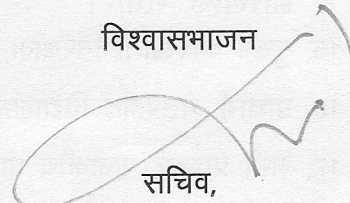 विश्वासभाजन
सचिव,